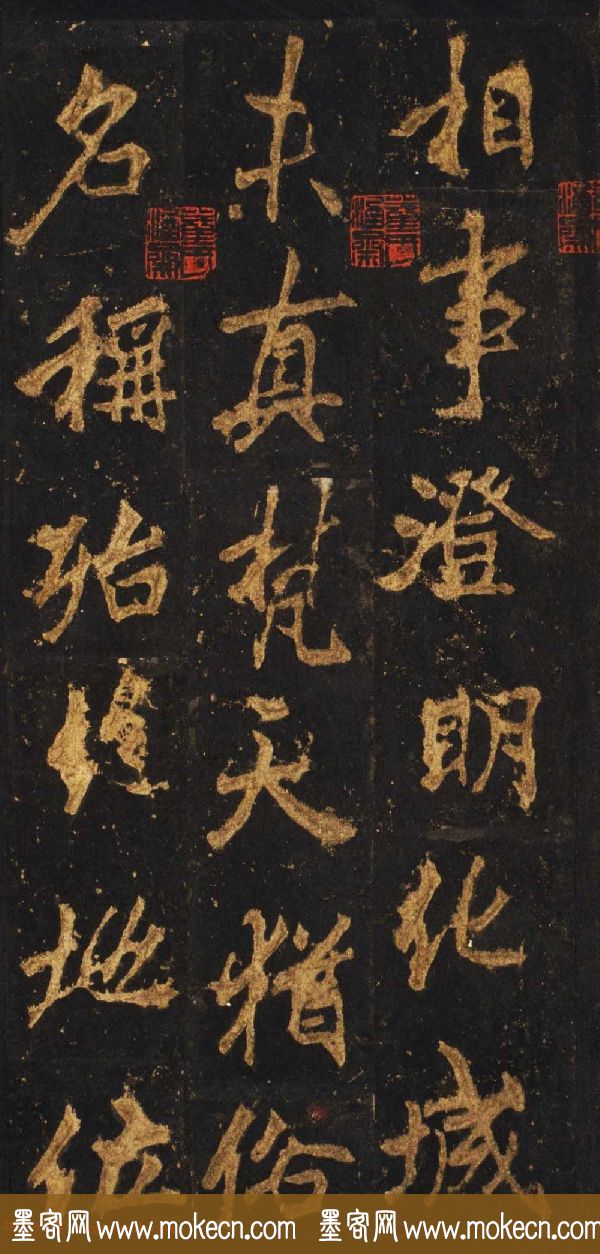 相事澄明化城
未真梵天猶俗
名稱殆地位
墨客网 www.mokecn.com 墨客网 www.mokecn.com